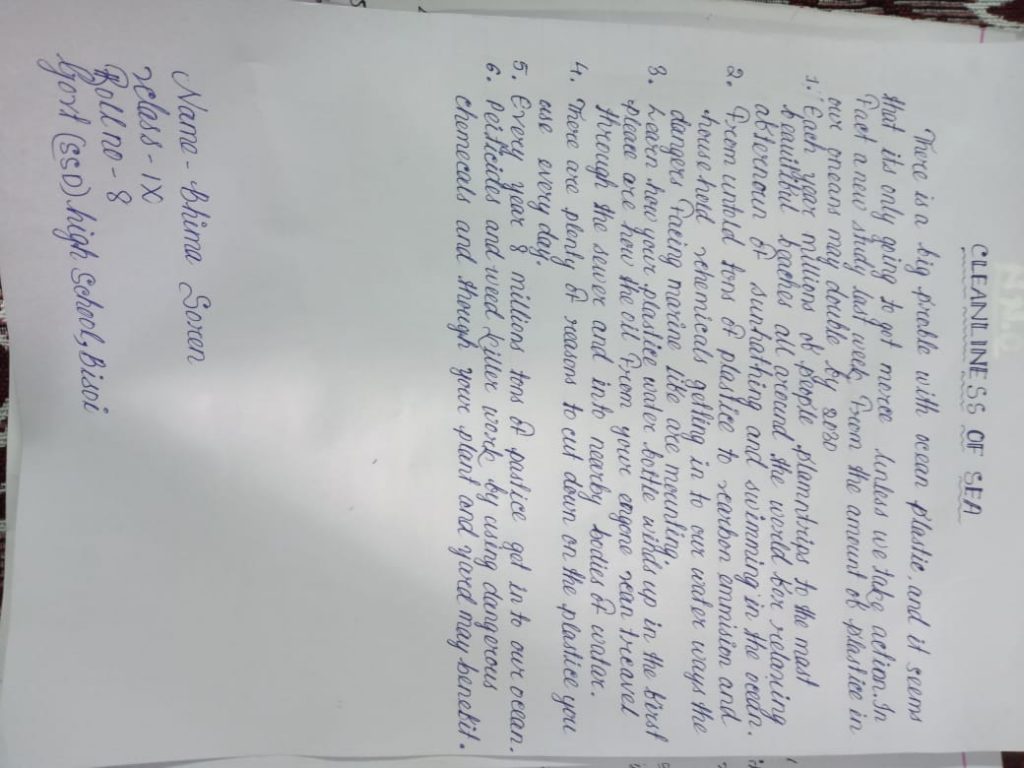 CLEANLINESS OF SEA
There is a big proble with ocean plastic, and it seems
that its only going to get morce unless we take action. In
Fact a new study last week, From the amunt of plastice in
our oneans may double by 2030
1. Each year millions of people plamntrips to the most
beautiful beaches all around the world for relaning
abternoun of sunbathing and swimming in the ocean.
2. From untold tons of plastice to carbon emmision and
house hold chemicals getting in to our water ways the
dangers Facing marine like are mounting
3. Learn how your plastice water bottle winds up in the first
pleace are how the oil From your engone can treavel
through the sewer and into nearby bodies of water.
4. There are plenty of reasons to cut down on the plastice you
use every day.
5. Every year 8 millions tons of pastice get in to our ocean.
6. Persticides and weed killer work by using dangerous
chemecals and through your plant and yard may benefit.
Name - Bhima Soren
class - IX
Roll no - 8
Govt (SSD) high School, Bisoi